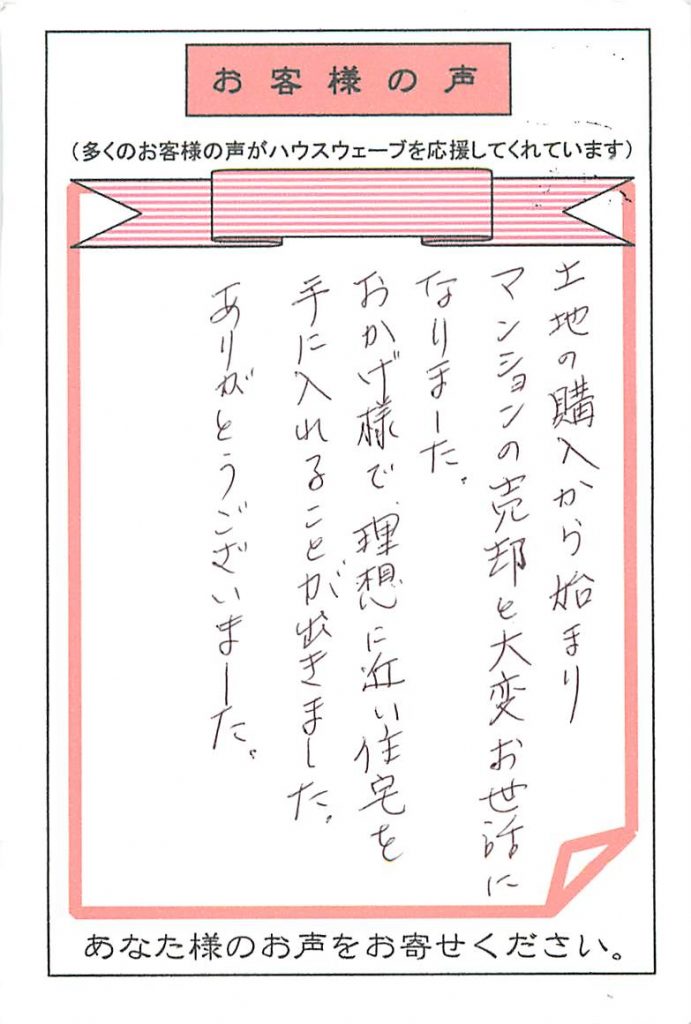 お客様の声
（多くのお客様の声がハウスウェーブを応援してくれています）
土地の購入から始まり
マンションの売却と大変お世話に
なりました。
おかげ様で、理想に近い住宅を
手に入れることが出きました。
ありがとうございました。
あなた様のお声をお寄せください。